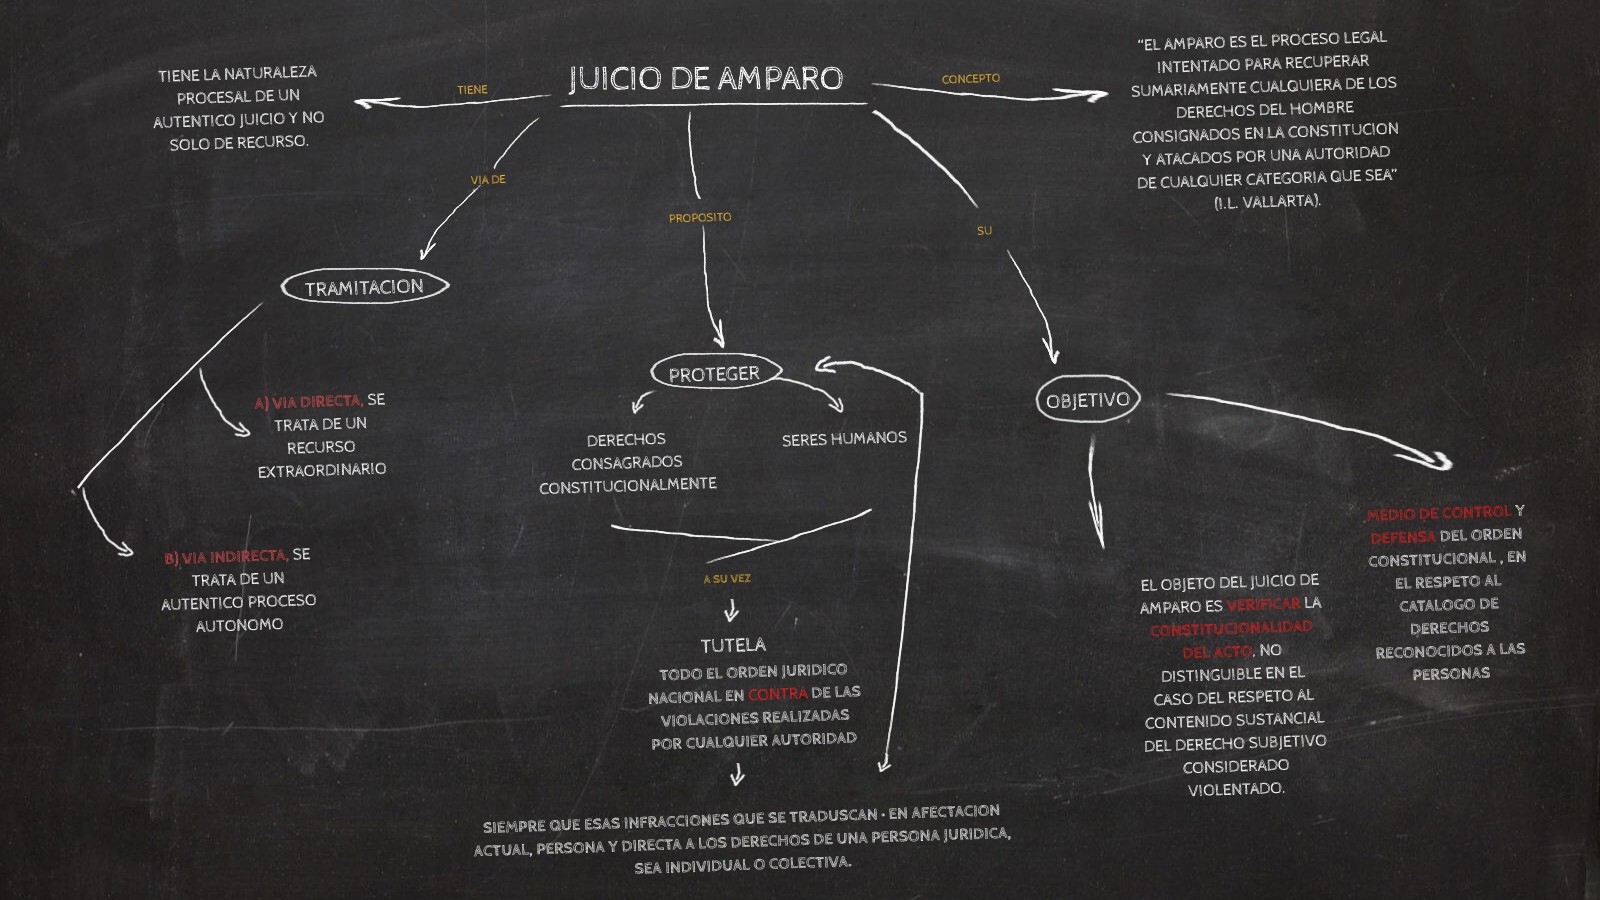 JUICIO DE AMPARO
TIENE
TIENE LA NATURALEZA
PROCESAL DE UN
AUTENTICO JUICIO Y NO
SOLO DE RECURSO.
CONCEPTO
"EL AMPARO ES EL PROCESO LEGAL
INTENTADO PARA RECUPERAR
SUMARIAMENTE CUALQUIERA DE LOS
DERECHOS DEL HOMBRE
CONSIGNADOS EN LA CONSTITUCION
Y ATACADOS POR UNA AUTORIDAD
DE CUALQUIER CATEGORIA QUE SEA"
(I.L. VALLARTA).
VIA DE
TRAMITACION
A) VIA DIRECTA, SE
TRATA DE UN
RECURSO
EXTRAORDINARIO
B) VIA INDIRECTA, SE
TRATA DE UN
AUTENTICO PROCESO
AUTONOMO
PROPOSITO
PROTEGER
DERECHOS
CONSAGRADOS
CONSTITUCIONALMENTE
SERES HUMANOS
A SU VEZ
TUTELA
TODO EL ORDEN JURIDICO
NACIONAL EN CONTRA DE LAS
VIOLACIONES REALIZADAS
POR CUALQUIER AUTORIDAD
SIEMPRE QUE ESAS INFRACCIONES QUE SE TRADUSCAN · EN AFECTACION
ACTUAL, PERSONA Y DIRECTA A LOS DERECHOS DE UNA PERSONA JURIDICA,
SEA INDIVIDUAL O COLECTIVA.
SU
OBJETIVO
EL OBJETO DEL JUICIO DE
AMPARO ES VERIFICAR LA
CONSTITUCIONALIDAD
DEL ACTO, NO
DISTINGUIBLE EN EL
CASO DEL RESPETO AL
CONTENIDO SUSTANCIAL
DEL DERECHO SUBJETIVO
CONSIDERADO
VIOLENTADO.
MEDIO DE CONTROL Y
DEFENSA DEL ORDEN
CONSTITUCIONAL , EN
EL RESPETO AL
CATALOGO DE
DERECHOS
RECONOCIDOS A LAS
PERSONAS